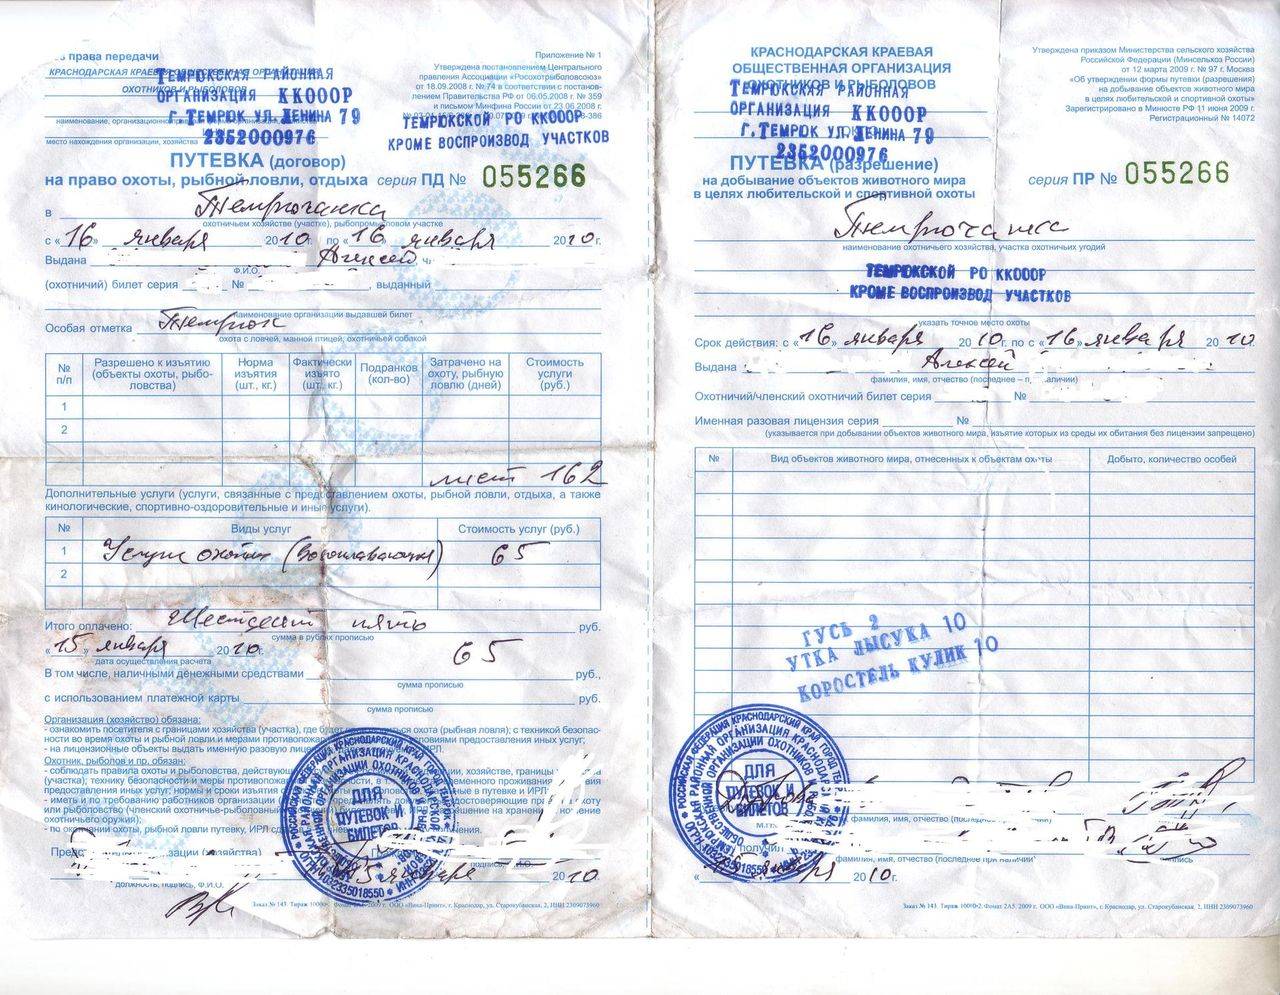 без права передачи
КРАСНОДАРСКАЯ КРАЕВАЯ ОБЩЕСТВЕННАЯ ОРГАНИЗАЦИЯ
ОХОТНИКОВ И РЫБОЛОВОВ
ТЕМРЮКСКАЯ РАЙОННАЯ
ОРГАНИЗАЦИЯ ККОООР
Г.ТЕМРЮК УЛ.ЛЕНИНА 79
2352000976
место нахождения организации, хозяйства
Приложение № 1
Утверждена постановлением Центрального
правления Ассоциации «Росохотрыболовсоюз»
от 18.09.2008 г. № 74 в соответствии с постанов-
лением Правительства РФ от 06.05.2008 г. № 359
и письмом Минфина России от 23.06.2008 г.
ТЕМРЮКСКОЙ РО ККОООР
КРОМЕ ВОСПРОИЗВОД УЧАСТКОВ
ПУТЕВКА (договор)
на право охоты, рыбной ловли, отдыха серия ПД № 055266
в Темрючанка
охотничьем хозяйстве (участке), рыбопромысловом участке
с «16» января 2010 г. по «16» января 2010 г.
Выдана Алексей
Ф.И.О.
(охотничий) билет серия № , выданный
наименование организации выдавшей билет
Особая отметка Темрюк
охота с ловчей, манной птицей, охотничьей собакой
№ п/п Разрешено к изъятию (объекты охоты, рыболовства) Норма изъятия (шт., кг.) Фактически изъято (шт., кг.) Подранков (кол-во) Затрачено на охоту, рыбную ловлю (дней) Стоимость услуги (руб.)
1
2
лист 162
Дополнительные услуги (услуги, связанные с предоставлением охоты, рыбной ловли, отдыха, а также
кинологические, спортивно-оздоровительные и иные услуги).
№ Виды услуг Стоимость услуг (руб.)
1 Услуги охоты (водоплавающая) 65
2
Итого оплачено: Шестьдесят пять руб.
сумма в рублях прописью
«15» января 2010 г. 65
дата осуществления расчета
В том числе, наличными денежными средствами руб.,
сумма прописью
с использованием платежной карты руб.
сумма прописью
Организация (хозяйство) обязана:
- ознакомить посетителя с границами хозяйства (участка), где будет осуществляться охота (рыбная ловля); с техникой безопас-
ности во время охоты и рыбной ловли и мерами противопожарной безопасности, условиями предоставления иных услуг;
- на лицензионные объекты выдать именную разовую лицензию ИРЛ.
Охотник, рыболов и пр. обязан:
- соблюдать правила охоты и рыболовства,
предоставления иных услуг; нормы и сроки изъятия
- иметь и по требованию работников организации
охотничьего оружия);
- по окончании охоты, рыбной ловли путевку, ИРЛ
должность, подпись, Ф.И.О.
15 января 2010
ДЛЯ
ПУТЕВОК И
БИЛЕТОВ
Заказ № 143 Тираж 10000 Формат 2А5. 2009 г. ООО «Вика-Принт», г. Краснодар, ул. Старокубанская, 2, ИНН 2309073960
КРАСНОДАРСКАЯ КРАЕВАЯ
ОБЩЕСТВЕННАЯ ОРГАНИЗАЦИЯ
ОХОТНИКОВ И РЫБОЛОВОВ
ТЕМРЮКСКАЯ РАЙОННАЯ
ОРГАНИЗАЦИЯ ККОООР
Г.ТЕМРЮК УЛ.ЛЕНИНА 79
2352000976
Утверждена приказом Министерства сельского хозяйства
Российской Федерации (Минсельхоз России)
от 12 марта 2009 г. № 97 г. Москва
«Об утверждении формы путевки (разрешения)
на добывание объектов животного мира
в целях любительской и спортивной охоты»
Зарегистрировано в Минюсте РФ 11 июня 2009 г.
Регистрационный № 14072
ПУТЕВКА (разрешение)
на добывание объектов животного мира
в целях любительской и спортивной охоты
серия ПР № 055266
Темрючанка
наименование охотничьего хозяйства, участка охотничьих угодий
ТЕМРЮКСКОЙ РО ККОООР
КРОМЕ ВОСПРОИЗВОД УЧАСТКОВ
указать точное место охоты
Срок действия: с «16» января 2010 г. по с «16» января 2010
Выдана Алексей
фамилия, имя, отчество (последнее – при наличии)
Охотничий/членский охотничий билет серия №
Именная разовая лицензия серия №
(указывается при добывании объектов животного мира, изъятие которых из среды их обитания без лицензии запрещено)
№ Вид объектов животного мира, отнесенных к объектам охоты Добыто, количество особей
ГУСЬ 2
УТКА ЛЫСУХА 10
КОРОСТЕЛЬ КУЛИК 10
ДЛЯ
ПУТЕВОК И
БИЛЕТОВ
фамилия, имя, отчество
получил
фамилия, имя, отчество (последнее при наличии)
подпись
«15» января 2010 г.
Заказ № 143 Тираж 10000 Формат 2А5. 2009 г. ООО «Вика-Принт», г. Краснодар, ул. Старокубанская, 2, ИНН 2309073960